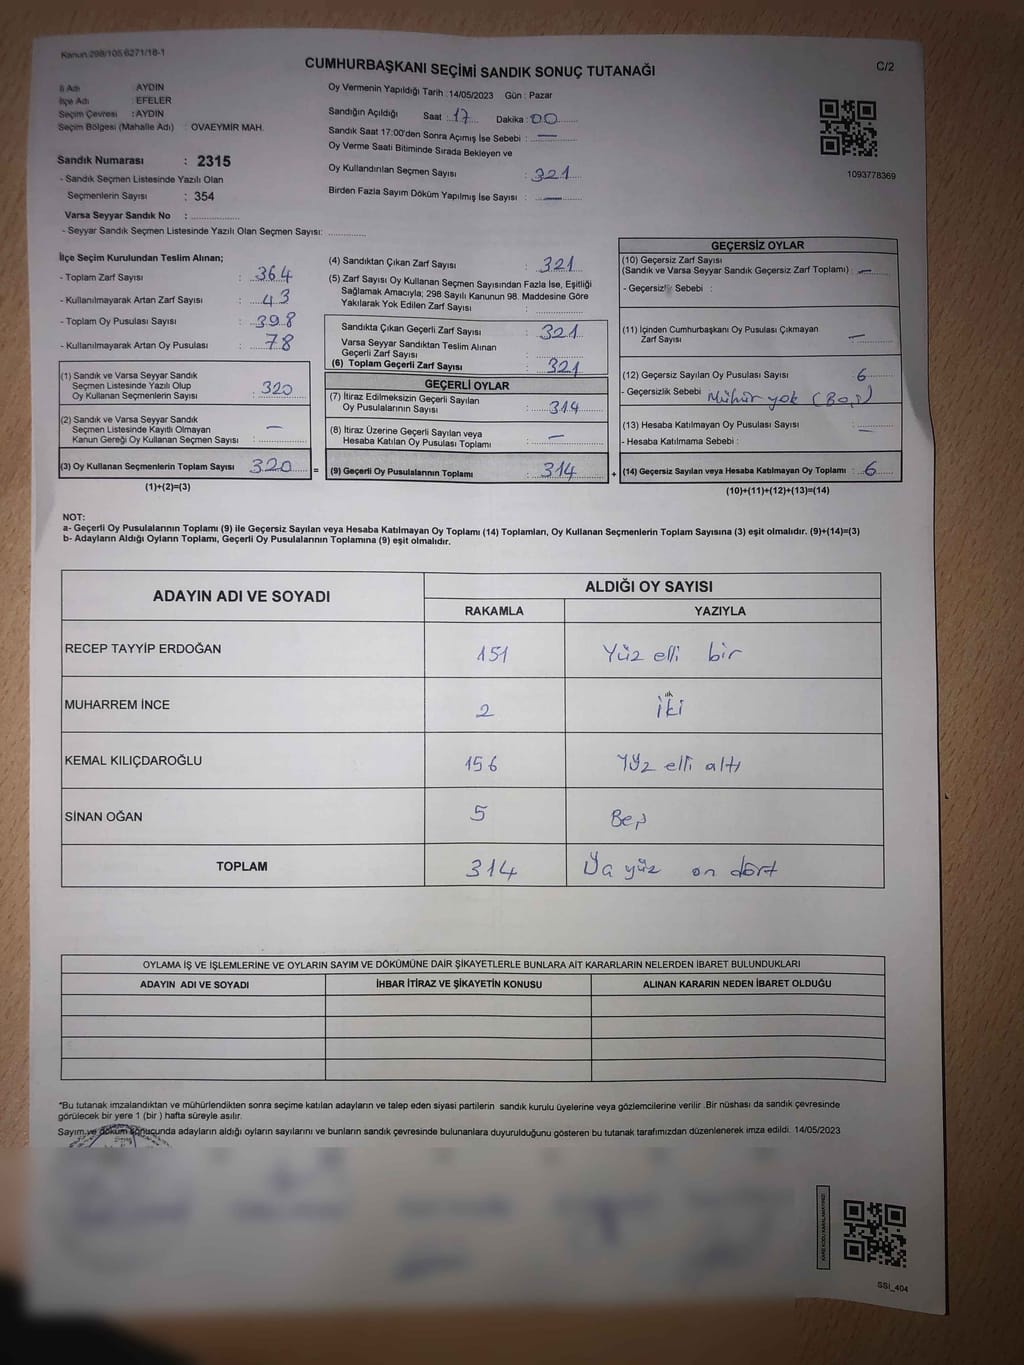 Kanun:298/105,6271/18-1
CUMHURBAŞKANI SEÇİMİ SANDIK SONUÇ TUTANAĞI
C/2
İl Adı : AYDIN
İlçe Adı : EFELER
Seçim Çevresi : AYDIN
Seçim Bölgesi (Mahalle Adı) : OVAEYMİR MAH.
Sandık Numarası : 2315
- Sandık Seçmen Listesinde Yazılı Olan
Seçmenlerin Sayısı : 354
Varsa Seyyar Sandık No :
- Seyyar Sandık Seçmen Listesinde Yazılı Olan Seçmen Sayısı:
Oy Vermenin Yapıldığı Tarih : 14/05/2023 Gün : Pazar
Sandığın Açıldığı Saat : 17 Dakika : 00
Sandık Saat 17:00'den Sonra Açımış İse Sebebi : —
Oy Verme Saati Bitiminde Sırada Bekleyen ve
Oy Kullandırılan Seçmen Sayısı : 321
Birden Fazla Sayım Döküm Yapılmış İse Sayısı : —
1093778369
İlçe Seçim Kurulundan Teslim Alınan;
- Toplam Zarf Sayısı : 364
- Kullanılmayarak Artan Zarf Sayısı : 43
- Toplam Oy Pusulası Sayısı : 398
- Kullanılmayarak Artan Oy Pusulası : 78
(1) Sandık ve Varsa Seyyar Sandık
Seçmen Listesinde Yazılı Olup
Oy Kullanan Seçmenlerin Sayısı : 320
(2) Sandık ve Varsa Seyyar Sandık
Seçmen Listesinde Kayıtlı Olmayan
Kanun Gereği Oy Kullanan Seçmen Sayısı : —
(3) Oy Kullanan Seçmenlerin Toplam Sayısı : 320 =
(1)+(2)=(3)
(4) Sandıktan Çıkan Zarf Sayısı : 321
(5) Zarf Sayısı Oy Kullanan Seçmen Sayısından Fazla İse, Eşitliği
Sağlamak Amacıyla; 298 Sayılı Kanunun 98. Maddesine Göre
Yakılarak Yok Edilen Zarf Sayısı :
Sandıkta Çıkan Geçerli Zarf Sayısı : 321
Varsa Seyyar Sandıktan Teslim Alınan
Geçerli Zarf Sayısı :
(6) Toplam Geçerli Zarf Sayısı : 321
GEÇERLİ OYLAR
(7) İtiraz Edilmeksizin Geçerli Sayılan
Oy Pusulalarının Sayısı : 314
(8) İtiraz Üzerine Geçerli Sayılan veya
Hesaba Katılan Oy Pusulası Toplamı : —
(9) Geçerli Oy Pusulalarının Toplamı : 314 +
GEÇERSİZ OYLAR
(10) Geçersiz Zarf Sayısı
(Sandık ve Varsa Seyyar Sandık Geçersiz Zarf Toplamı) : —
- Geçersizlik Sebebi :
(11) İçinden Cumhurbaşkanı Oy Pusulası Çıkmayan
Zarf Sayısı : —
(12) Geçersiz Sayılan Oy Pusulası Sayısı : 6
- Geçersizlik Sebebi : Mühür yok (Boş)
(13) Hesaba Katılmayan Oy Pusulası Sayısı : —
- Hesaba Katılmama Sebebi :
(14) Geçersiz Sayılan veya Hesaba Katılmayan Oy Toplamı : 6
(10)+(11)+(12)+(13)=(14)
NOT:
a- Geçerli Oy Pusulalarının Toplamı (9) ile Geçersiz Sayılan veya Hesaba Katılmayan Oy Toplamı (14) Toplamları, Oy Kullanan Seçmenlerin Toplam Sayısına (3) eşit olmalıdır. (9)+(14)=(3)
b- Adayların Aldığı Oyların Toplamı, Geçerli Oy Pusulalarının Toplamına (9) eşit olmalıdır.
ADAYIN ADI VE SOYADI
ALDIĞI OY SAYISI
RAKAMLA YAZIYLA
RECEP TAYYİP ERDOĞAN 151 Yüz elli bir
MUHARREM İNCE 2 iki
KEMAL KILIÇDAROĞLU 156 Yüz elli altı
SİNAN OĞAN 5 Beş
TOPLAM 314 Üç yüz on dört
OYLAMA İŞ VE İŞLEMLERİNE VE OYLARIN SAYIM VE DÖKÜMÜNE DAİR ŞİKAYETLERLE BUNLARA AİT KARARLARIN NELERDEN İBARET BULUNDUKLARI
ADAYIN ADI VE SOYADI İHBAR İTİRAZ VE ŞİKAYETİN KONUSU ALINAN KARARIN NEDEN İBARET OLDUĞU
*Bu tutanak imzalandıktan ve mühürlendikten sonra seçime katılan adayların ve talep eden siyasi partilerin sandık kurulu üyelerine veya gözlemcilerine verilir .Bir nüshası da sandık çevresinde
görülecek bir yere 1 (bir ) hafta süreyle asılır.
Sayım ve döküm sonucunda adayların aldığı oyların sayılarını ve bunların sandık çevresinde bulunanlara duyurulduğunu gösteren bu tutanak tarafımızdan düzenlenerek imza edildi. 14/05/2023
SSİ_404